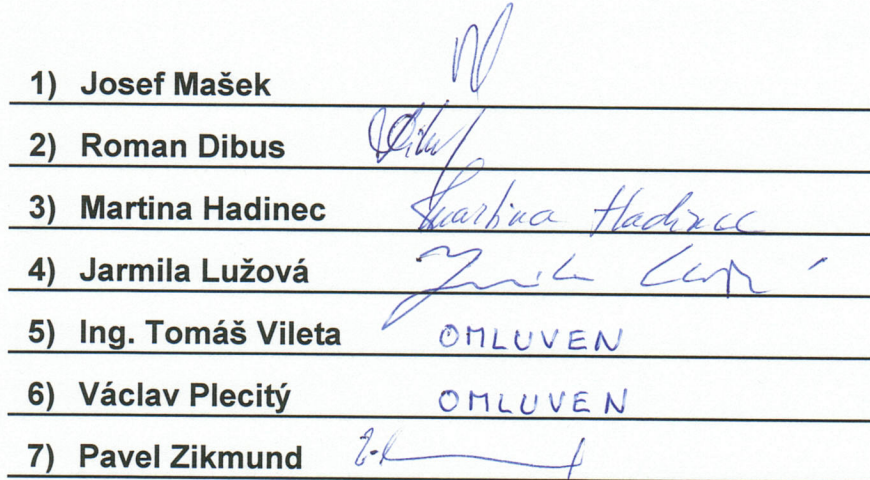 1) Josef Mašek
2) Roman Dibus
3) Martina Hadinec Martina Hadinec
4) Jarmila Lužová Jarmila
5) Ing. Tomáš Vileta OMLUVEN
6) Václav Plecitý OMLUVEN
7) Pavel Zikmund